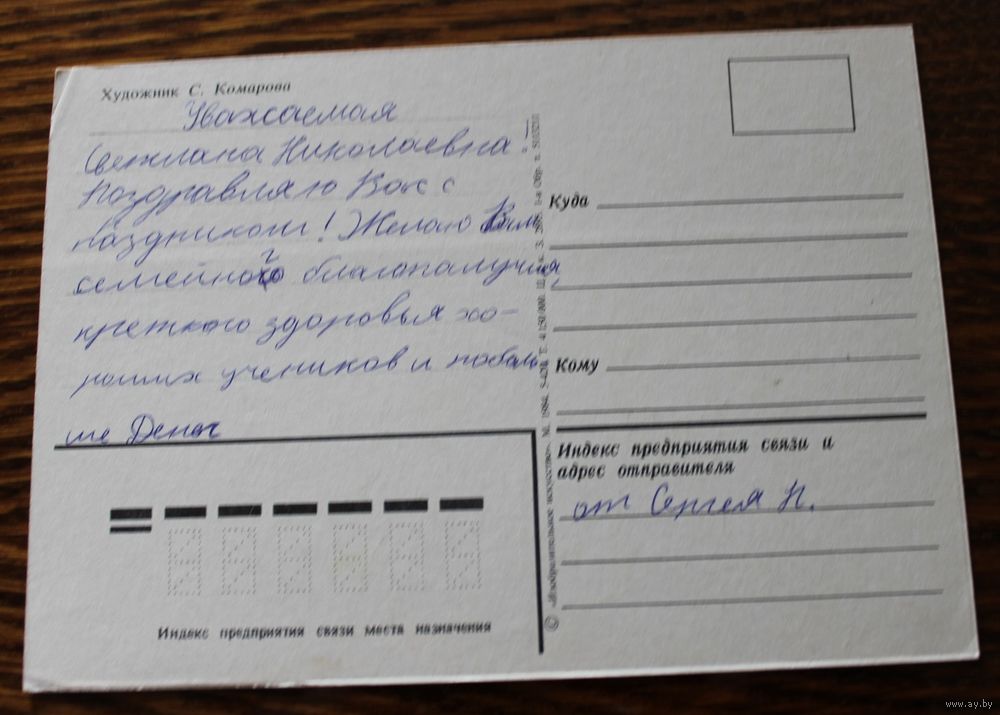 Художник С. Комарова
Уважаемая
Светлана Николаевна
Поздравляю Вас с
праздником! Желаю Вам
семейного благополучия,
крепкого здоровья хо-
роших учеников и поболь
ше Денег
Куда
Кому
Индекс предприятия связи и
адрес отправителя
от Сергея П.
Индекс предприятия связи места назначения
© «Изобразительное искусство». М. 1984.
www.ay.by